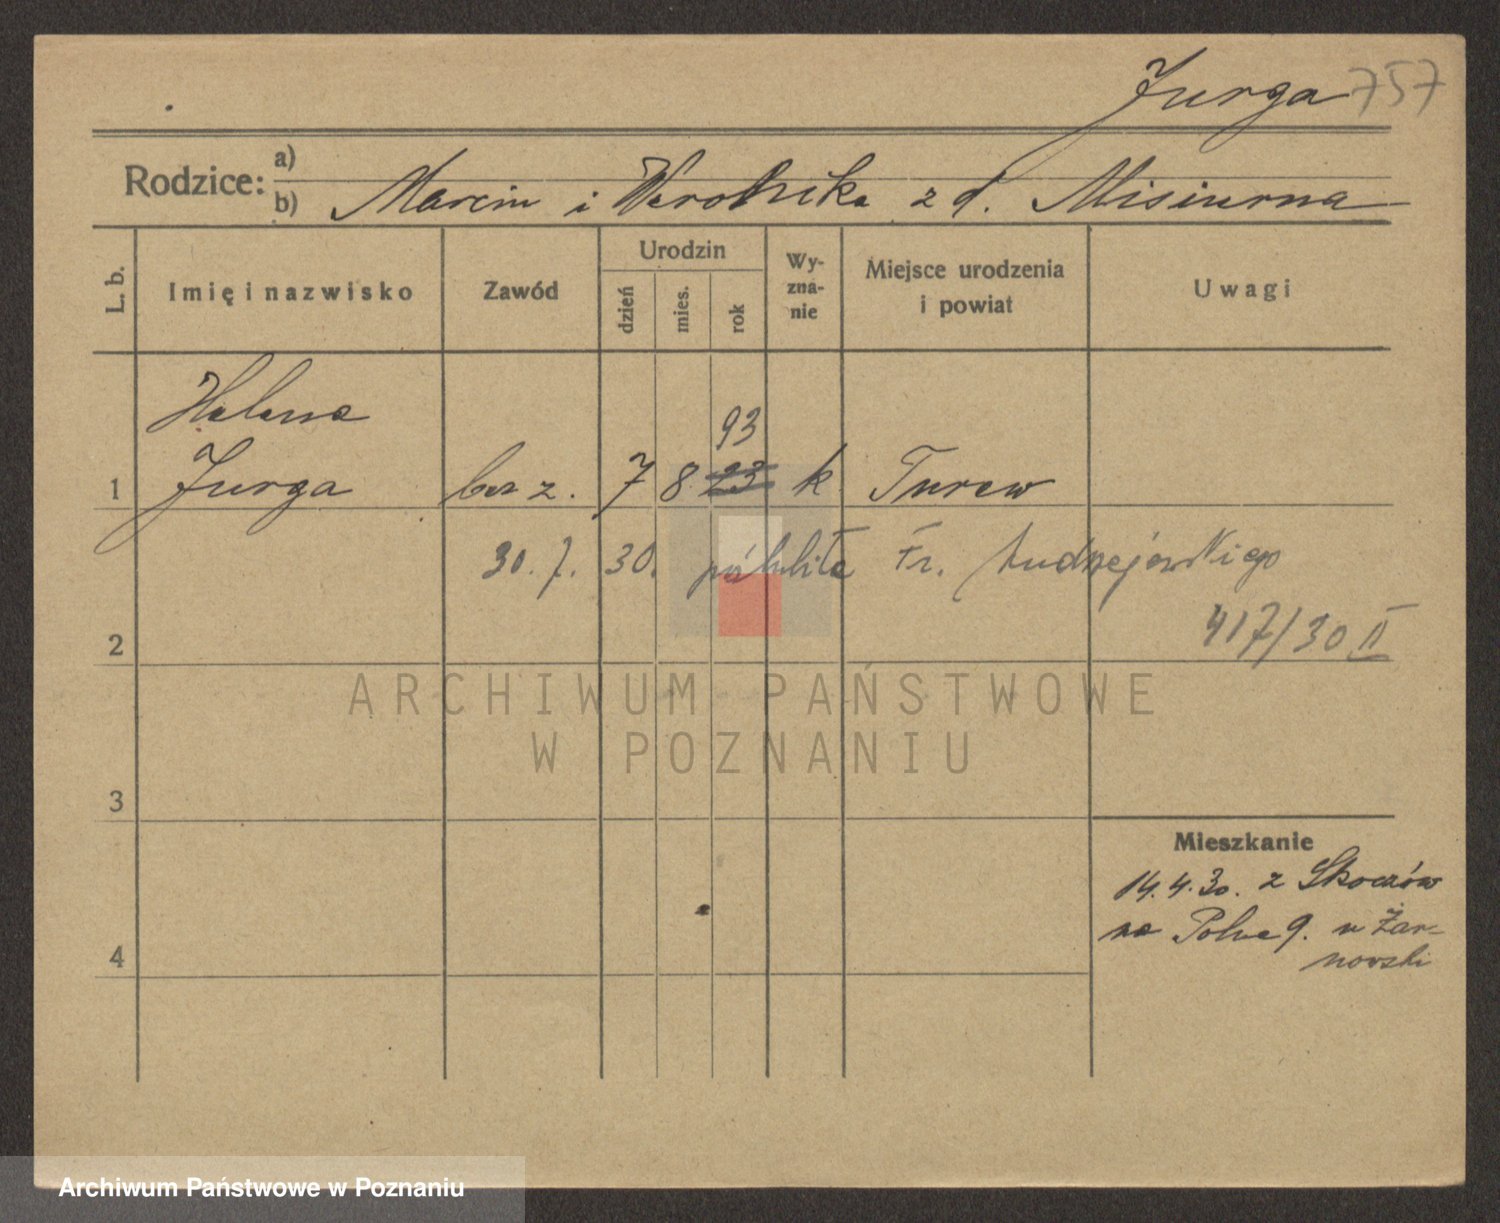 Jurga 757
Rodzice: a)
b) Marcin i Weronika z d. Misiurna
L. b. Imię i nazwisko Zawód Urodzin dzień mies. rok Wy-zna-nie Miejsce urodzenia i powiat Uwagi
Helena
93
1 Jurga bez z. 7 8 23 k Turew
30. 7. 30. poślubiła Fr. Andrzejewskiego
417/30 II
2
ARCHIWUM PAŃSTWOWE
W POZNANIU
3
Mieszkanie
14.4.30. z Skoczów
na Polna 9. u Żar-
nowski
4
Archiwum Państwowe w Poznaniu